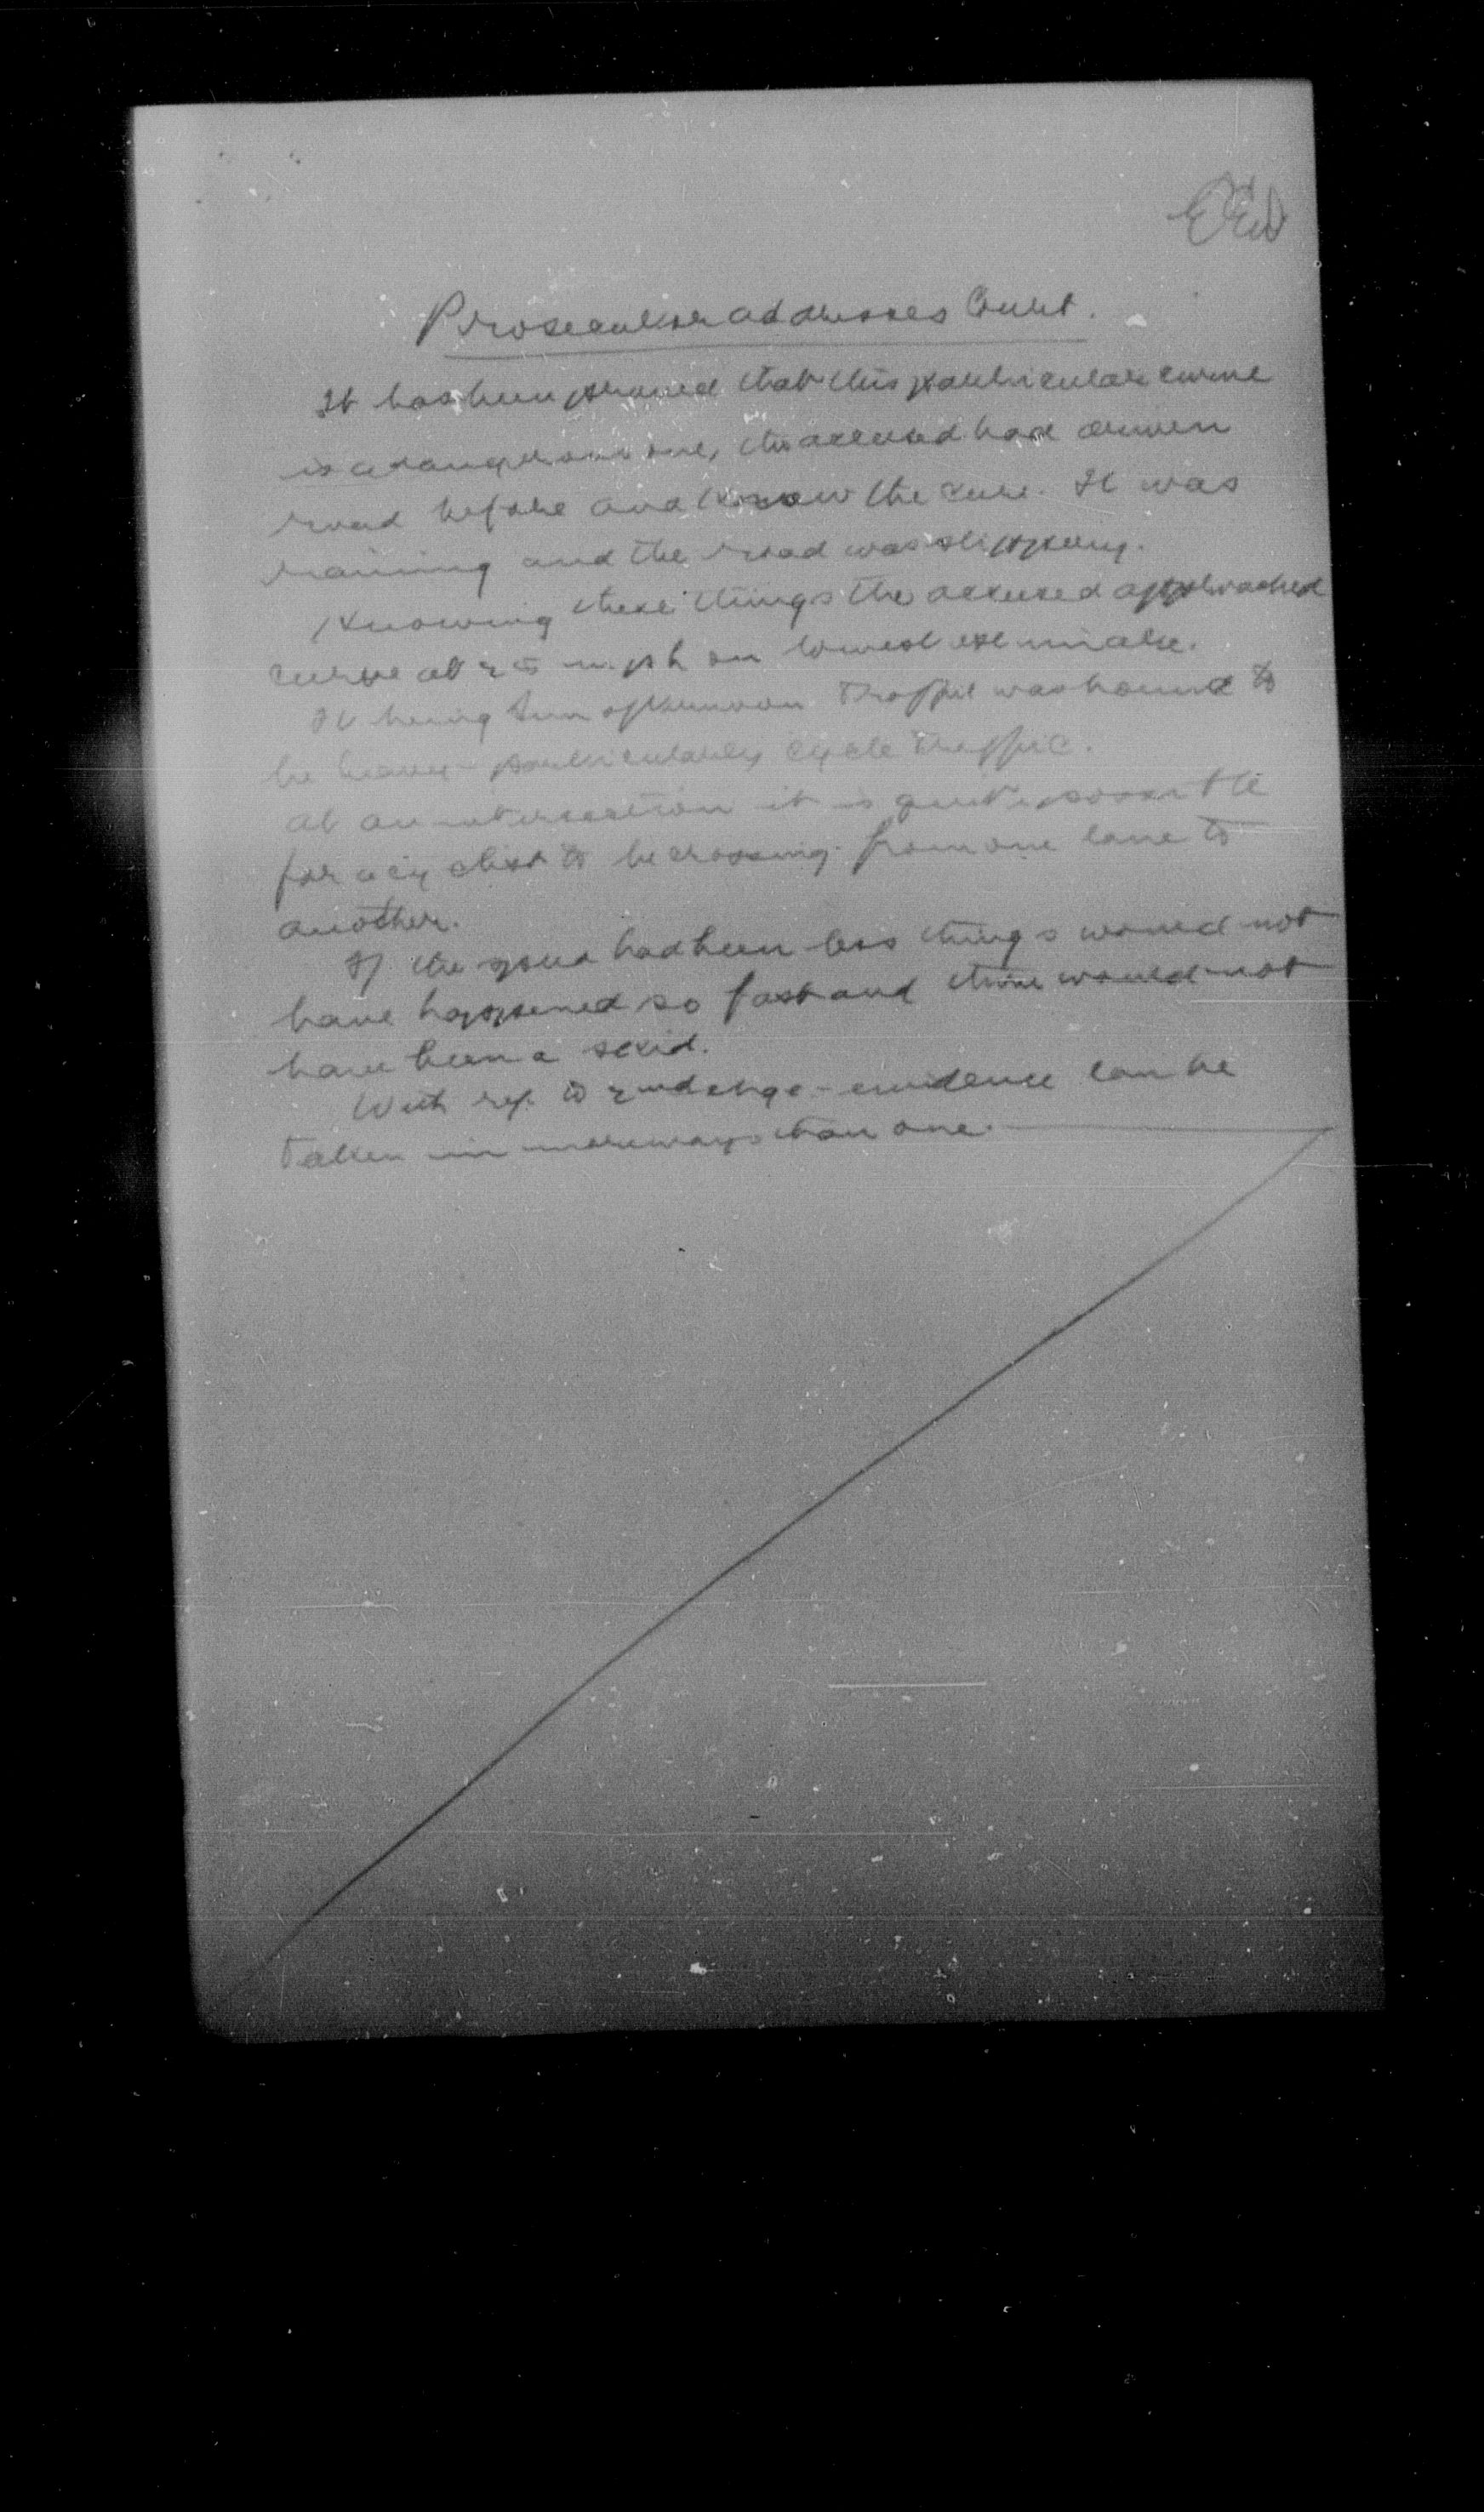 Prosecutor addresses Court.
It has been proved that this particular curve
is a dangerous one, the accused had driven
road before and know the curve. It was
raining and the road was slippery.
Knowing these things the accused approached
curve at 25 m.p.h on lowest estimate.
It being Sun afternoon Traffic was bound to
be heavy - particularly cycle traffic.
at an intersection it is quite possible
for a cyclist to be crossing from one lane to
another.
If the speed had been less things would not
have happened so fast and there would not
have been a skid.
With ref. to 2nd chge - evidence can be
taken in more ways than one.